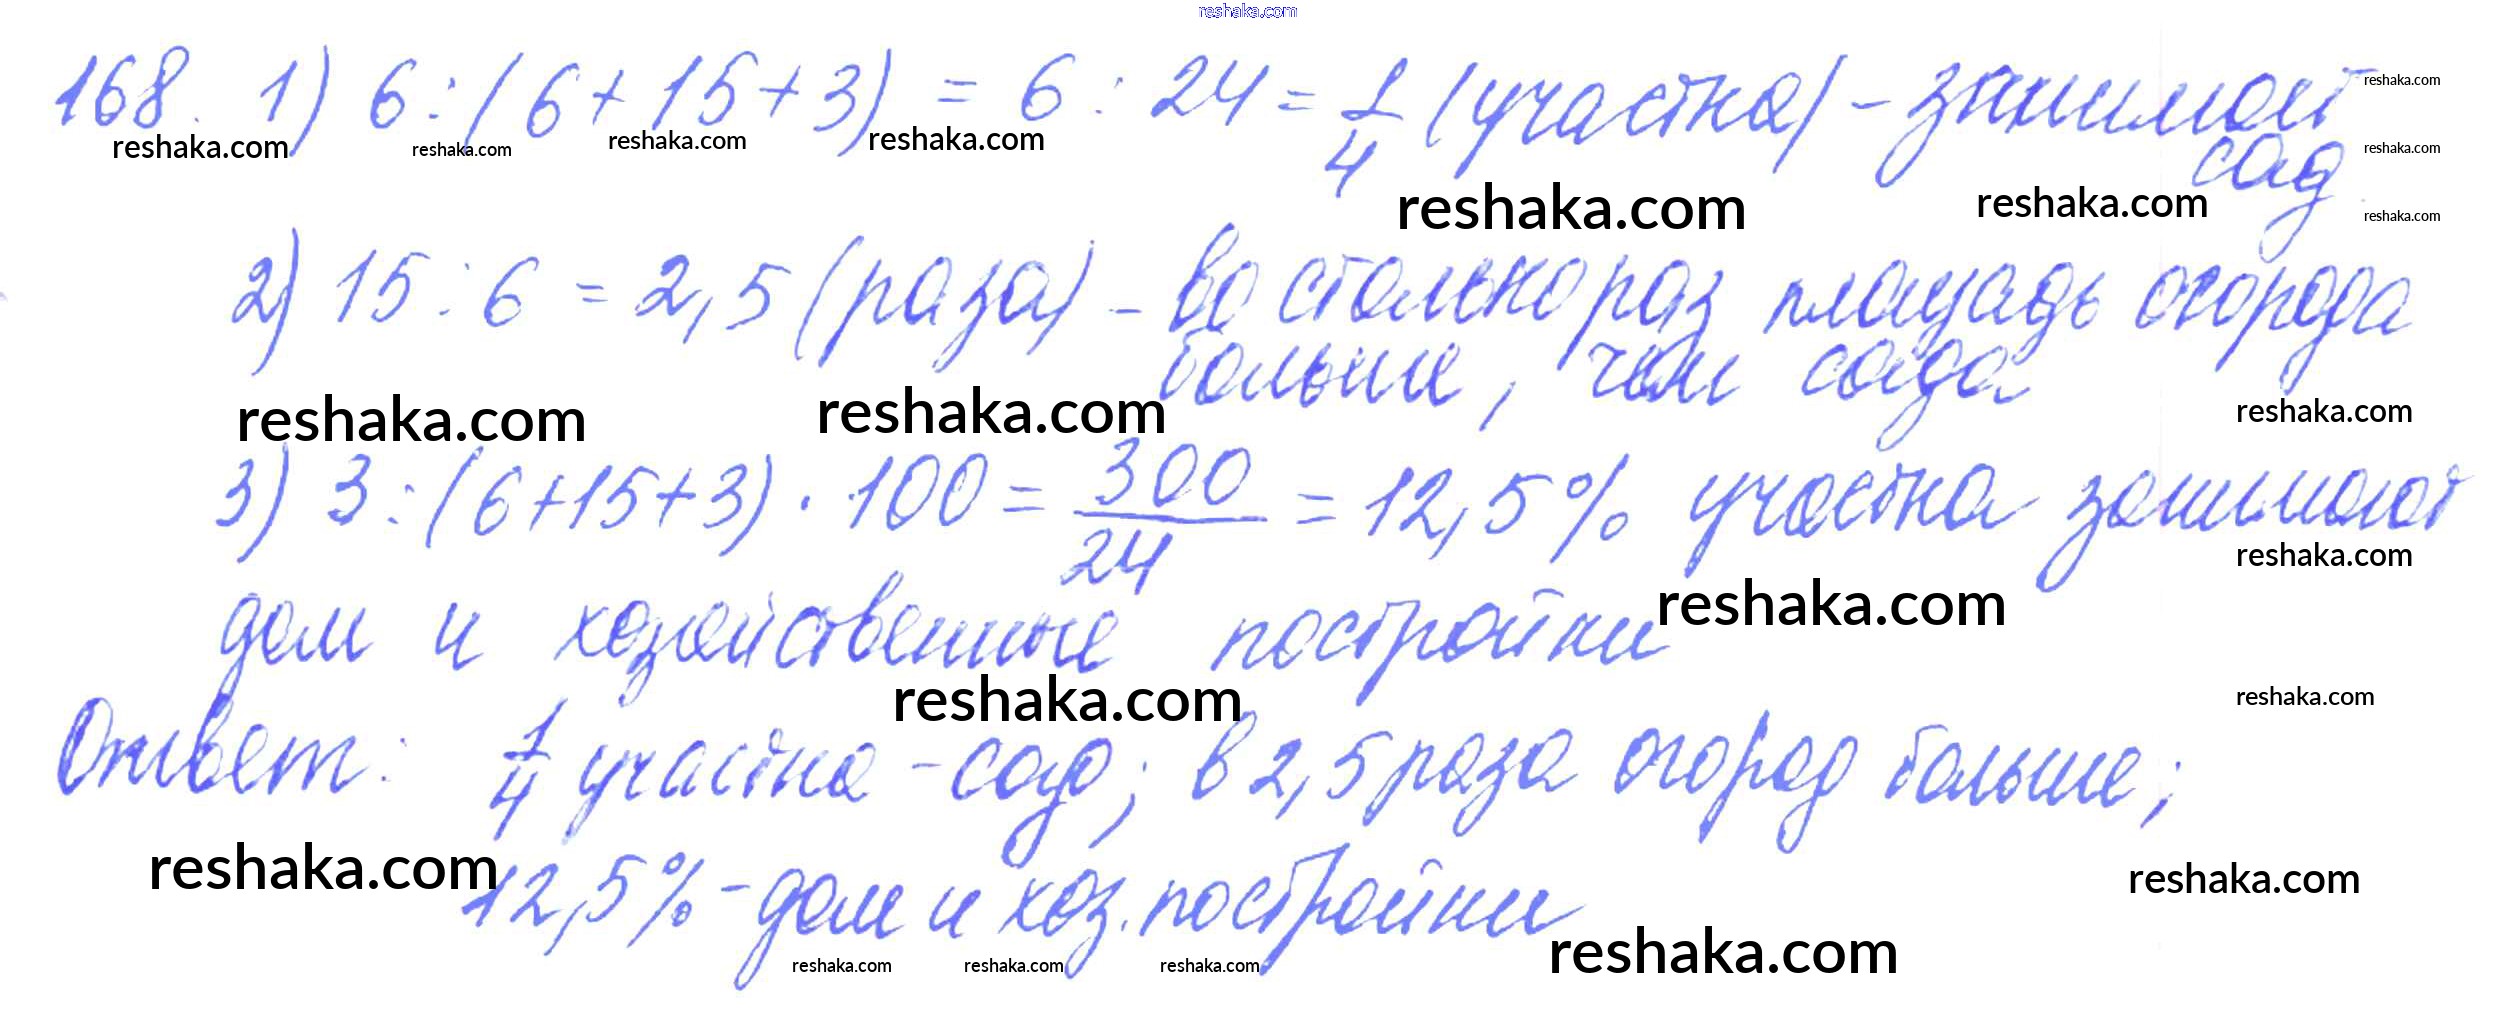 reshaka.com
168. 1) 6 : (6 + 15 + 3) = 6 : 24 = 1/4 (участка) - занимает reshaka.com
сад reshaka.com
reshaka.com reshaka.com reshaka.com reshaka.com
reshaka.com reshaka.com reshaka.com
2) 15 : 6 = 2,5 (раза) - во столько раз площадь огорода
больше, чем сада
reshaka.com reshaka.com reshaka.com
3) 3 : (6 + 15 + 3) · 100 = 300/24 = 12,5 % участка занимают
reshaka.com
дом и хозяйственные постройки reshaka.com
reshaka.com reshaka.com
Ответ: 1/4 участка - сад; в 2,5 раза огород больше;
reshaka.com 12,5 % - дом и хоз. постройки reshaka.com
reshaka.com reshaka.com reshaka.com reshaka.com